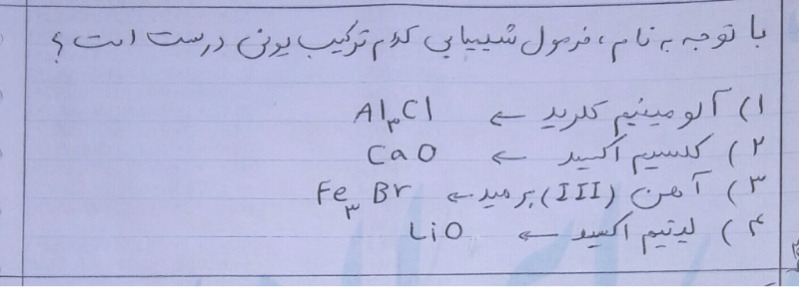 با توجه به نام، فرمول شیمیایی کدام ترکیب یونی درست است؟
۱) آلومینیم کلرید ← Al₃Cl
۲) کلسیم اکسید ← CaO
۳) آهن (III) برمید ← Fe₃Br
۴) لیتیم اکسید ← LiO